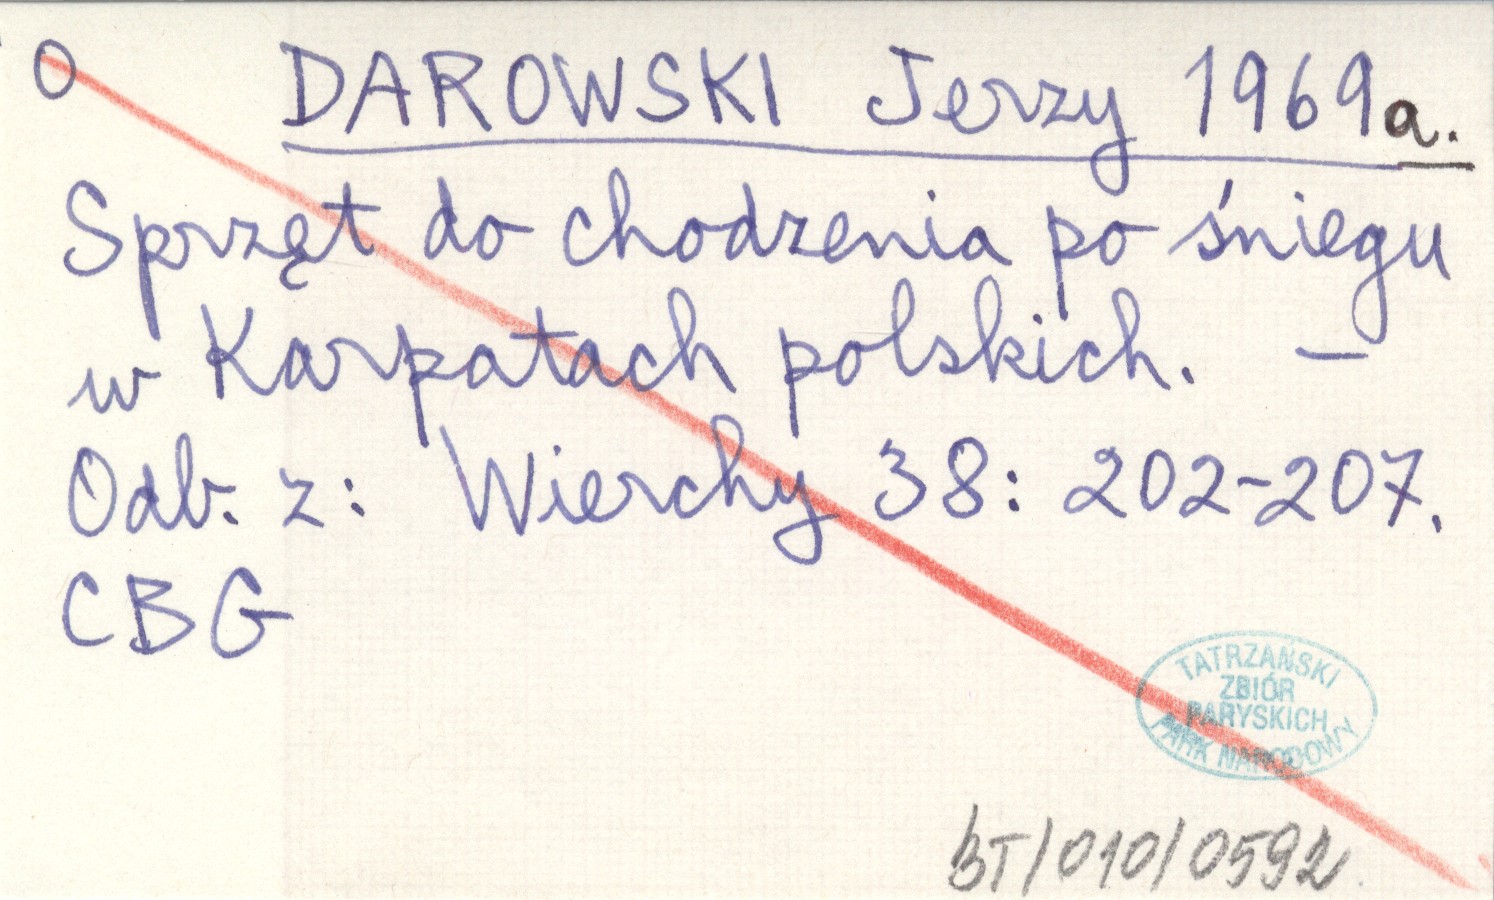 O DAROWSKI Jerzy 1969a.
Sprzęt do chodzenia po śniegu
w Karpatach polskich. —
Odb. z: Wierchy 38: 202-207.
CBG
TATRZAŃSKI
ZBIÓR
PARYSKICH
PARK NARODOWY
BT/010/0592